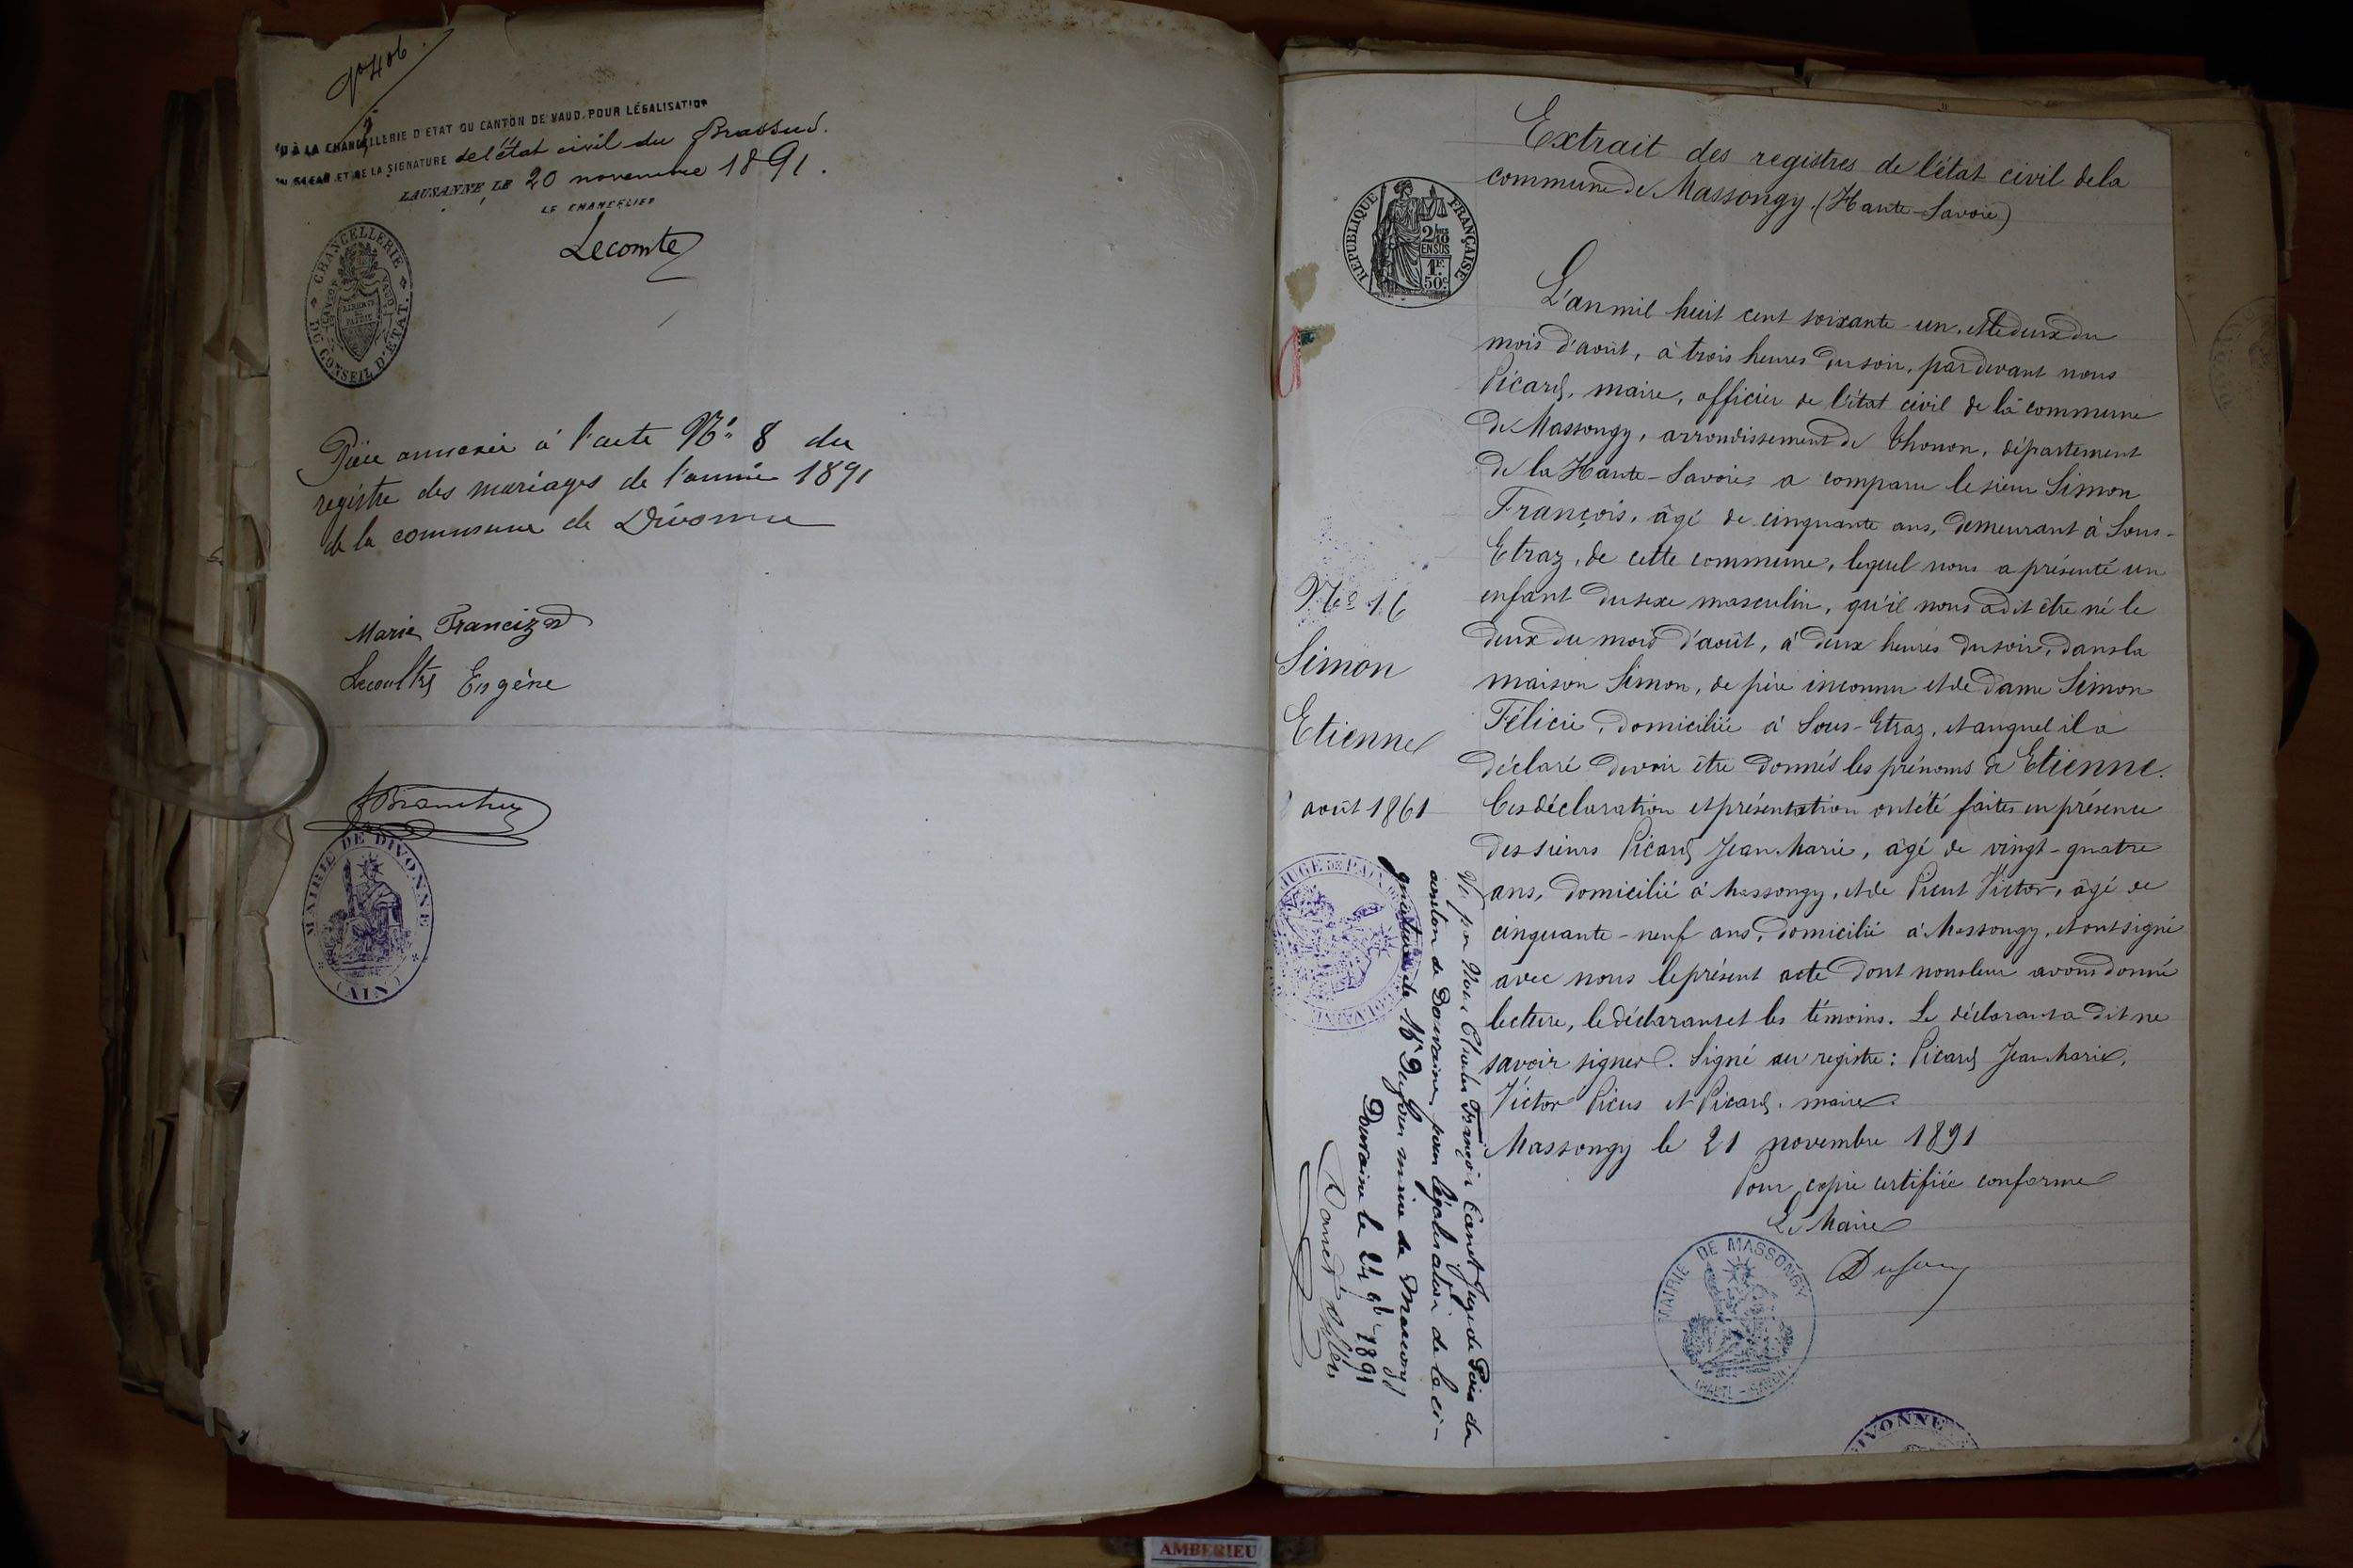 No 406
VU À LA CHANCELLERIE D'ETAT DU CANTON DE VAUD, POUR LÉGALISATION
DU SCEAU ET DE LA SIGNATURE de l'état civil du Brassus.
LAUSANNE, LE 20 novembre 1891.
LE CHANCELIER
Lecomte
CHANCELLERIE DU CONSEIL D'ETAT
CANTON DE VAUD
LIBERTÉ ET PATRIE
Pièce annexée à l'acte No 8 du
registre des mariages de l'année 1891
de la commune de Divonne
Marie Francizod
Lecoultre Eugène
MAIRIE DE DIVONNE
(AIN)
Extrait des registres de l'état civil de la
commune de Massongy. (Haute-Savoie)
REPUBLIQUE FRANÇAISE
2/10 EN SUS
1F 50c
L'an mil huit cent soixante-un, et le deux du
mois d'août, à trois heures du soir, par devant nous
Picard, maire, officier de l'état civil de la commune
de Massongy, arrondissement de Thonon, département
de la Haute-Savoie a comparu le sieur Simon
François, âgé de cinquante ans, demeurant à Sous-
Etraz, de cette commune, lequel nous a présenté un
enfant du sexe masculin, qu'il nous a dit être né le
deux du mois d'août, à deux heures du soir, dans la
maison Simon, de père inconnu et de dame Simon
Félicie, domiciliée à Sous-Etraz, et auquel il a
déclaré devoir être donnés les prénoms de Etienne.
Ces déclaration et présentation ont été faites en présence
des sieurs Picard Jean Marie, âgé de vingt-quatre
ans, domicilié à Massongy, et de Picut Victor, âgé de
cinquante-neuf ans, domicilié à Massongy, et ont signé
avec nous le présent acte dont nous leur avons donné
lecture, le déclarant et les témoins. Le déclarant a dit ne
savoir signer. Signé au registre: Picard Jean Marie,
Victor Picus et Picard, maire.
Massongy le 21 novembre 1891
Pour copie certifiée conforme
Le Maire
Dufour
MAIRIE DE MASSONGY
HAUTE-SAVOIE
DIVONNE
No 16
Simon
Etienne
août 1861
JUGE DE PAIX
Vu par Nous Charles François Canet Juge de Paix du
canton de Douvaine, pour légalisation de la si-
gnature de Mr Dufour maire de Massongy
Douvaine le 24 9b 1891
AMBERIEU